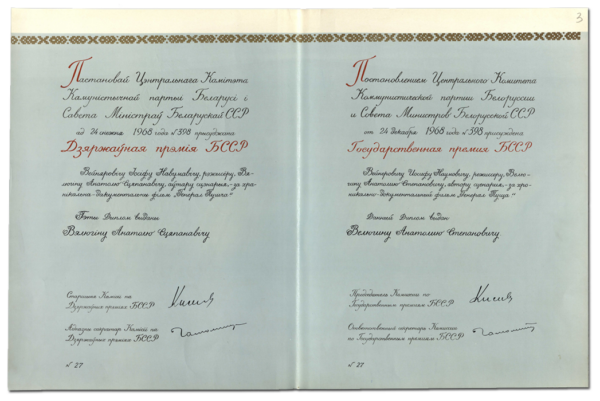 3
Пастановай Цэнтральнага Камітэта
Камуністычнай партыі Беларусі і
Савета Міністраў Беларускай ССР
ад 24 снежня 1968 года №398 прысуджана
Дзяржаўная прэмія БССР
Вейняровічу Іосіфу Навумавічу, рэжысёру, Вя-
люгіну Анатолю Сцяпанавічу, аўтару сцэнарыя,-за хра-
нікальна-дакументальны фільм „Генерал Пушча“
Гэты Дыплом выдан
Вялюгіну Анатолю Сцяпанавічу
Старшыня Камітэта па
Дзяржаўных прэміях БССР
Адказны сакратар Камітэта па
Дзяржаўных прэміях БССР
№ 27
Постановлением Центрального Комитета
Коммунистической партии Белоруссии
и Совета Министров Белорусской ССР
от 24 декабря 1968 года №398 присуждена
Государственная премия БССР
Вейнеровичу Иосифу Наумовичу, режиссеру, Велю-
гину Анатолию Степановичу, автору сценария,-за хро-
никально-документальный фильм „Генерал Пуща“
Данный Диплом выдан
Велюгину Анатолию Степановичу.
Председатель Комитета по
Государственным премиям БССР
Ответственный секретарь Комитета
по Государственным премиям БССР
№ 27